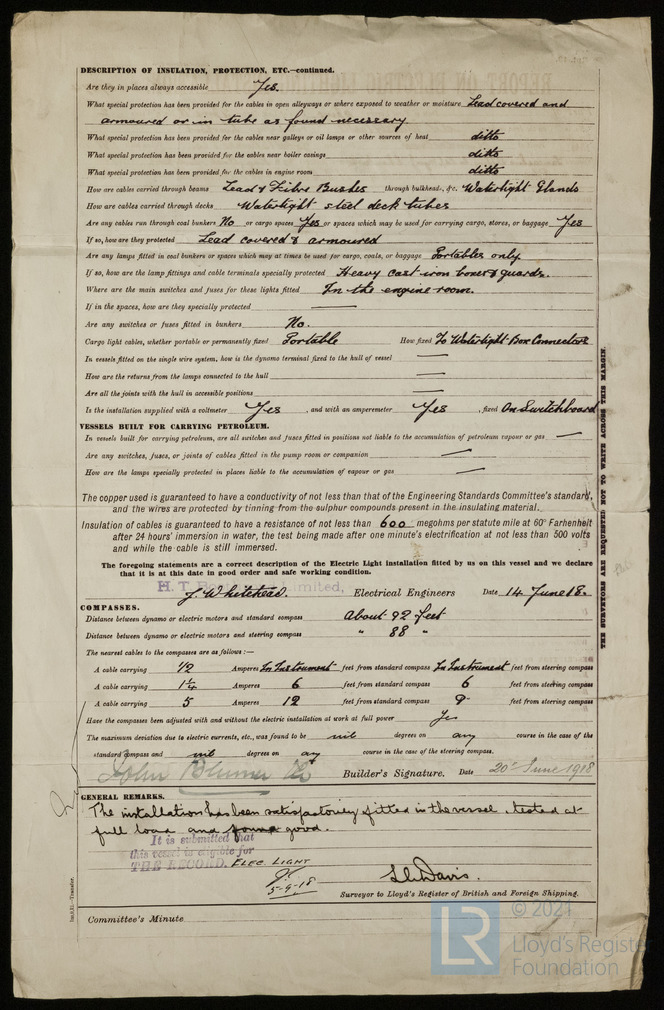 DESCRIPTION OF INSULATION, PROTECTION, ETC.—continued.
Are they in places always accessible Yes.
What special protection has been provided for the cables in open alleyways or where exposed to weather or moisture Lead covered and
armoured or in tube as found necessary
What special protection has been provided for the cables near galleys or oil lamps or other sources of heat ditto
What special protection has been provided for the cables near boiler casings ditto
What special protection has been provided for the cables in engine room ditto
How are cables carried through beams Lead & Fibre Bushes through bulkheads, &c. Watertight Glands
How are cables carried through decks Watertight steel deck tubes
Are any cables run through coal bunkers No or cargo spaces Yes or spaces which may be used for carrying cargo, stores, or baggage Yes
If so, how are they protected Lead covered & armoured
Are any lamps fitted in coal bunkers or spaces which may at times be used for cargo, coals, or baggage Portables only
If so, how are the lamp fittings and cable terminals specially protected Heavy cast iron boxes & guards.
Where are the main switches and fuses for these lights fitted In the engine room.
If in the spaces, how are they specially protected —
Are any switches or fuses fitted in bunkers No.
Cargo light cables, whether portable or permanently fixed Portable How fixed To Watertight Box Connectors
In vessels fitted on the single wire system, how is the dynamo terminal fixed to the hull of vessel —
How are the returns from the lamps connected to the hull —
Are all the joints with the hull in accessible positions —
Is the installation supplied with a voltmeter Yes, and with an amperemeter Yes, fixed On Switchboard
VESSELS BUILT FOR CARRYING PETROLEUM.
In vessels built for carrying petroleum, are all switches and fuses fitted in positions not liable to the accumulation of petroleum vapour or gas —
Are any switches, fuses, or joints of cables fitted in the pump room or companion —
How are the lamps specially protected in places liable to the accumulation of vapour or gas —
The copper used is guaranteed to have a conductivity of not less than that of the Engineering Standards Committee's standard,
and the wires are protected by tinning from the sulphur compounds present in the insulating material.
Insulation of cables is guaranteed to have a resistance of not less than 600 megohms per statute mile at 60° Farhenheit
after 24 hours' immersion in water, the test being made after one minute's electrification at not less than 500 volts
and while the cable is still immersed.
The foregoing statements are a correct description of the Electric Light installation fitted by us on this vessel and we declare
that it is at this date in good order and safe working condition.
H. T. Limited,
J. Whitehead. Electrical Engineers Date 14 June 18.
COMPASSES.
Distance between dynamo or electric motors and standard compass About 92 feet
Distance between dynamo or electric motors and steering compass " 88 "
The nearest cables to the compasses are as follows:—
A cable carrying 1/2 Amperes In Instrument feet from standard compass In Instrument feet from steering compass
A cable carrying 1 1/4 Amperes 6 feet from standard compass 6 feet from steering compass
A cable carrying 5 Amperes 12 feet from standard compass 9 feet from steering compass
Have the compasses been adjusted with and without the electric installation at work at full power Yes
The maximum deviation due to electric currents, etc., was found to be nil degrees on any course in the case of the
standard compass and nil degrees on any course in the case of the steering compass.
John Blumer & Co Builder's Signature. Date 20th June 1918
GENERAL REMARKS.
The installation has been satisfactorily fitted in the vessel, tested at
full load and found good.
It is submitted that
this vessel is eligible for
THE RECORD. ELEC LIGHT
5-9-18
Davis.
Surveyor to Lloyd's Register of British and Foreign Shipping.
Committee's Minute
THE SURVEYORS ARE REQUESTED NOT TO WRITE ACROSS THIS MARGIN.
© 2021
LR Lloyd's Register
Foundation